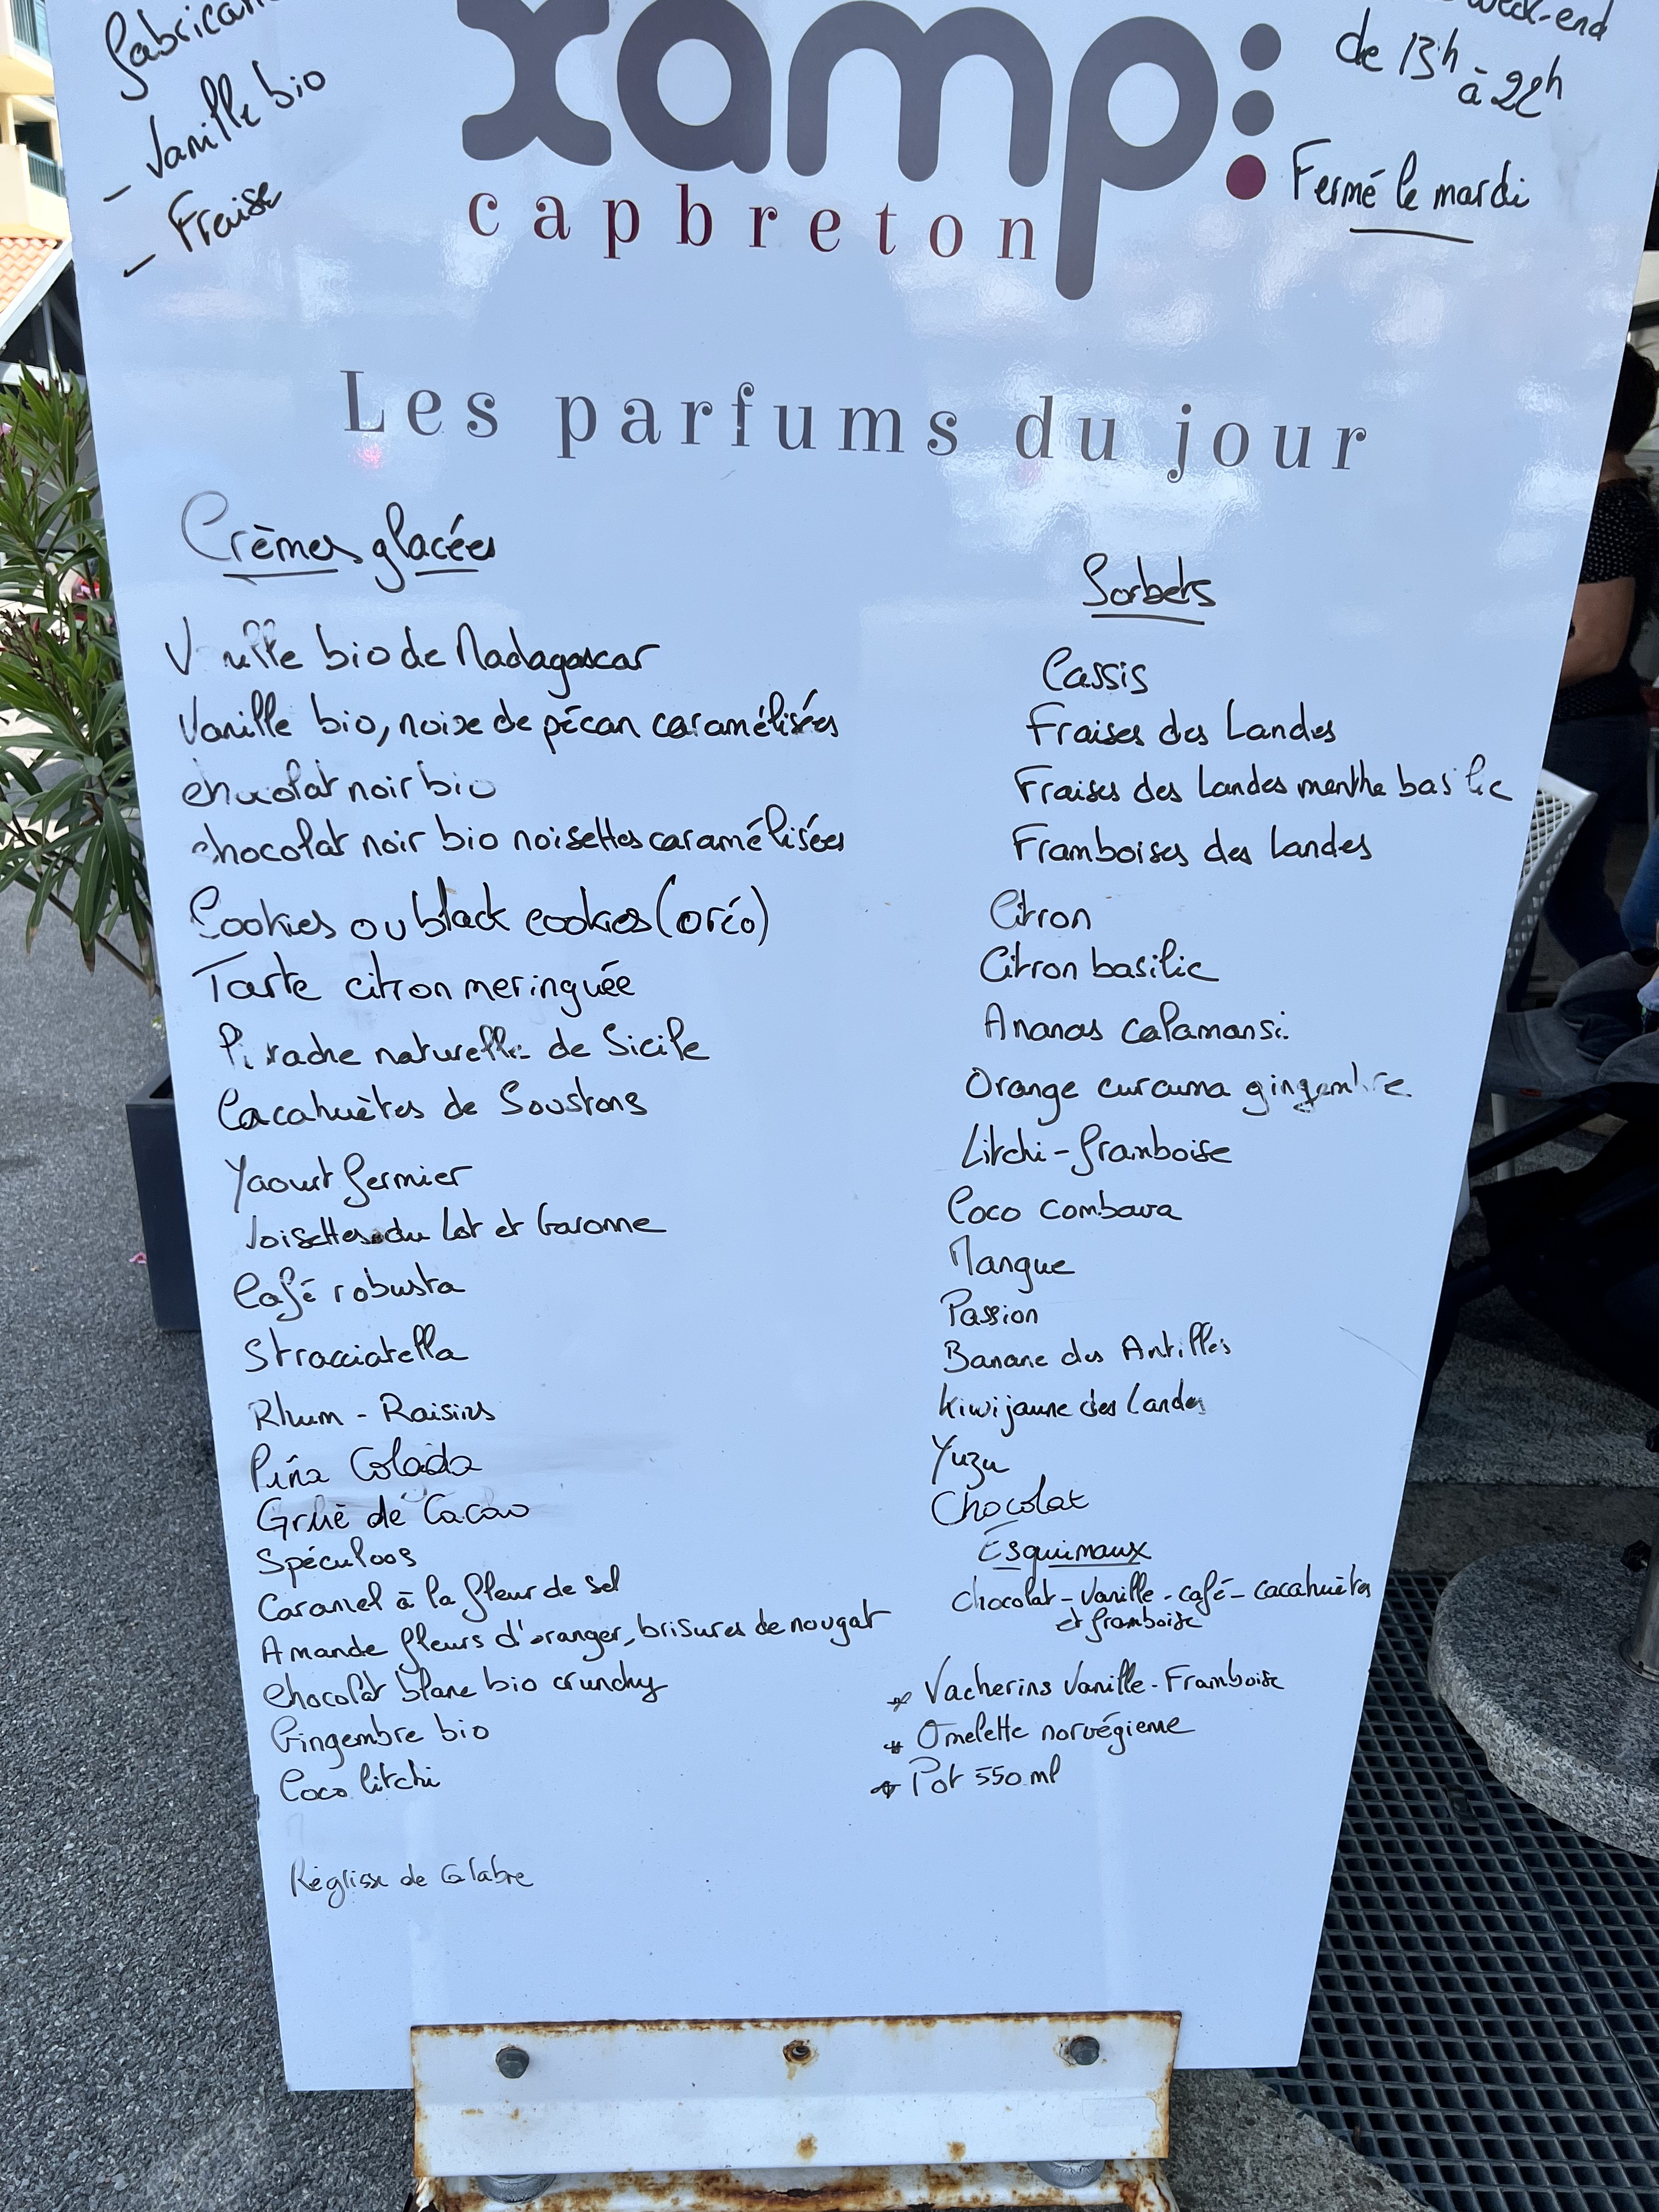 - Vanille bio
- Fraise
xamp:
capbreton
week-end
de 13h
à 22h
Fermé le mardi
Les parfums du jour
Crèmes glacées
Vanille bio de Madagascar
Vanille bio, noix de pécan caramélisées
chocolat noir bio
chocolat noir bio noisettes caramélisées
Cookies ou black cookies (oréo)
Tarte citron meringuée
Pistache naturelle de Sicile
Cacahuètes de Soustons
Yaourt fermier
Noisettes du Lot et Garonne
Café robusta
Stracciatella
Rhum - Raisins
Piña Colada
Grué de Cacao
Spéculoos
Caramel à la fleur de sel
Amande fleurs d'oranger, brisures de nougat
Chocolat blanc bio crunchy
Gingembre bio
Coco litchi
Réglisse de Calabre
Sorbets
Cassis
Fraises des Landes
Fraises des Landes menthe basilic
Framboises des Landes
Citron
Citron basilic
Ananas calamansi
Orange curcuma gingembre
Litchi-framboise
Coco combava
Mangue
Passion
Banane des Antilles
Kiwi jaune des Landes
Yuzu
Chocolat
Esquimaux
Chocolat - Vanille - café - cacahuètes
et framboise
* Vacherins Vanille - Framboise
* Omelette norvégienne
* Pot 550 ml